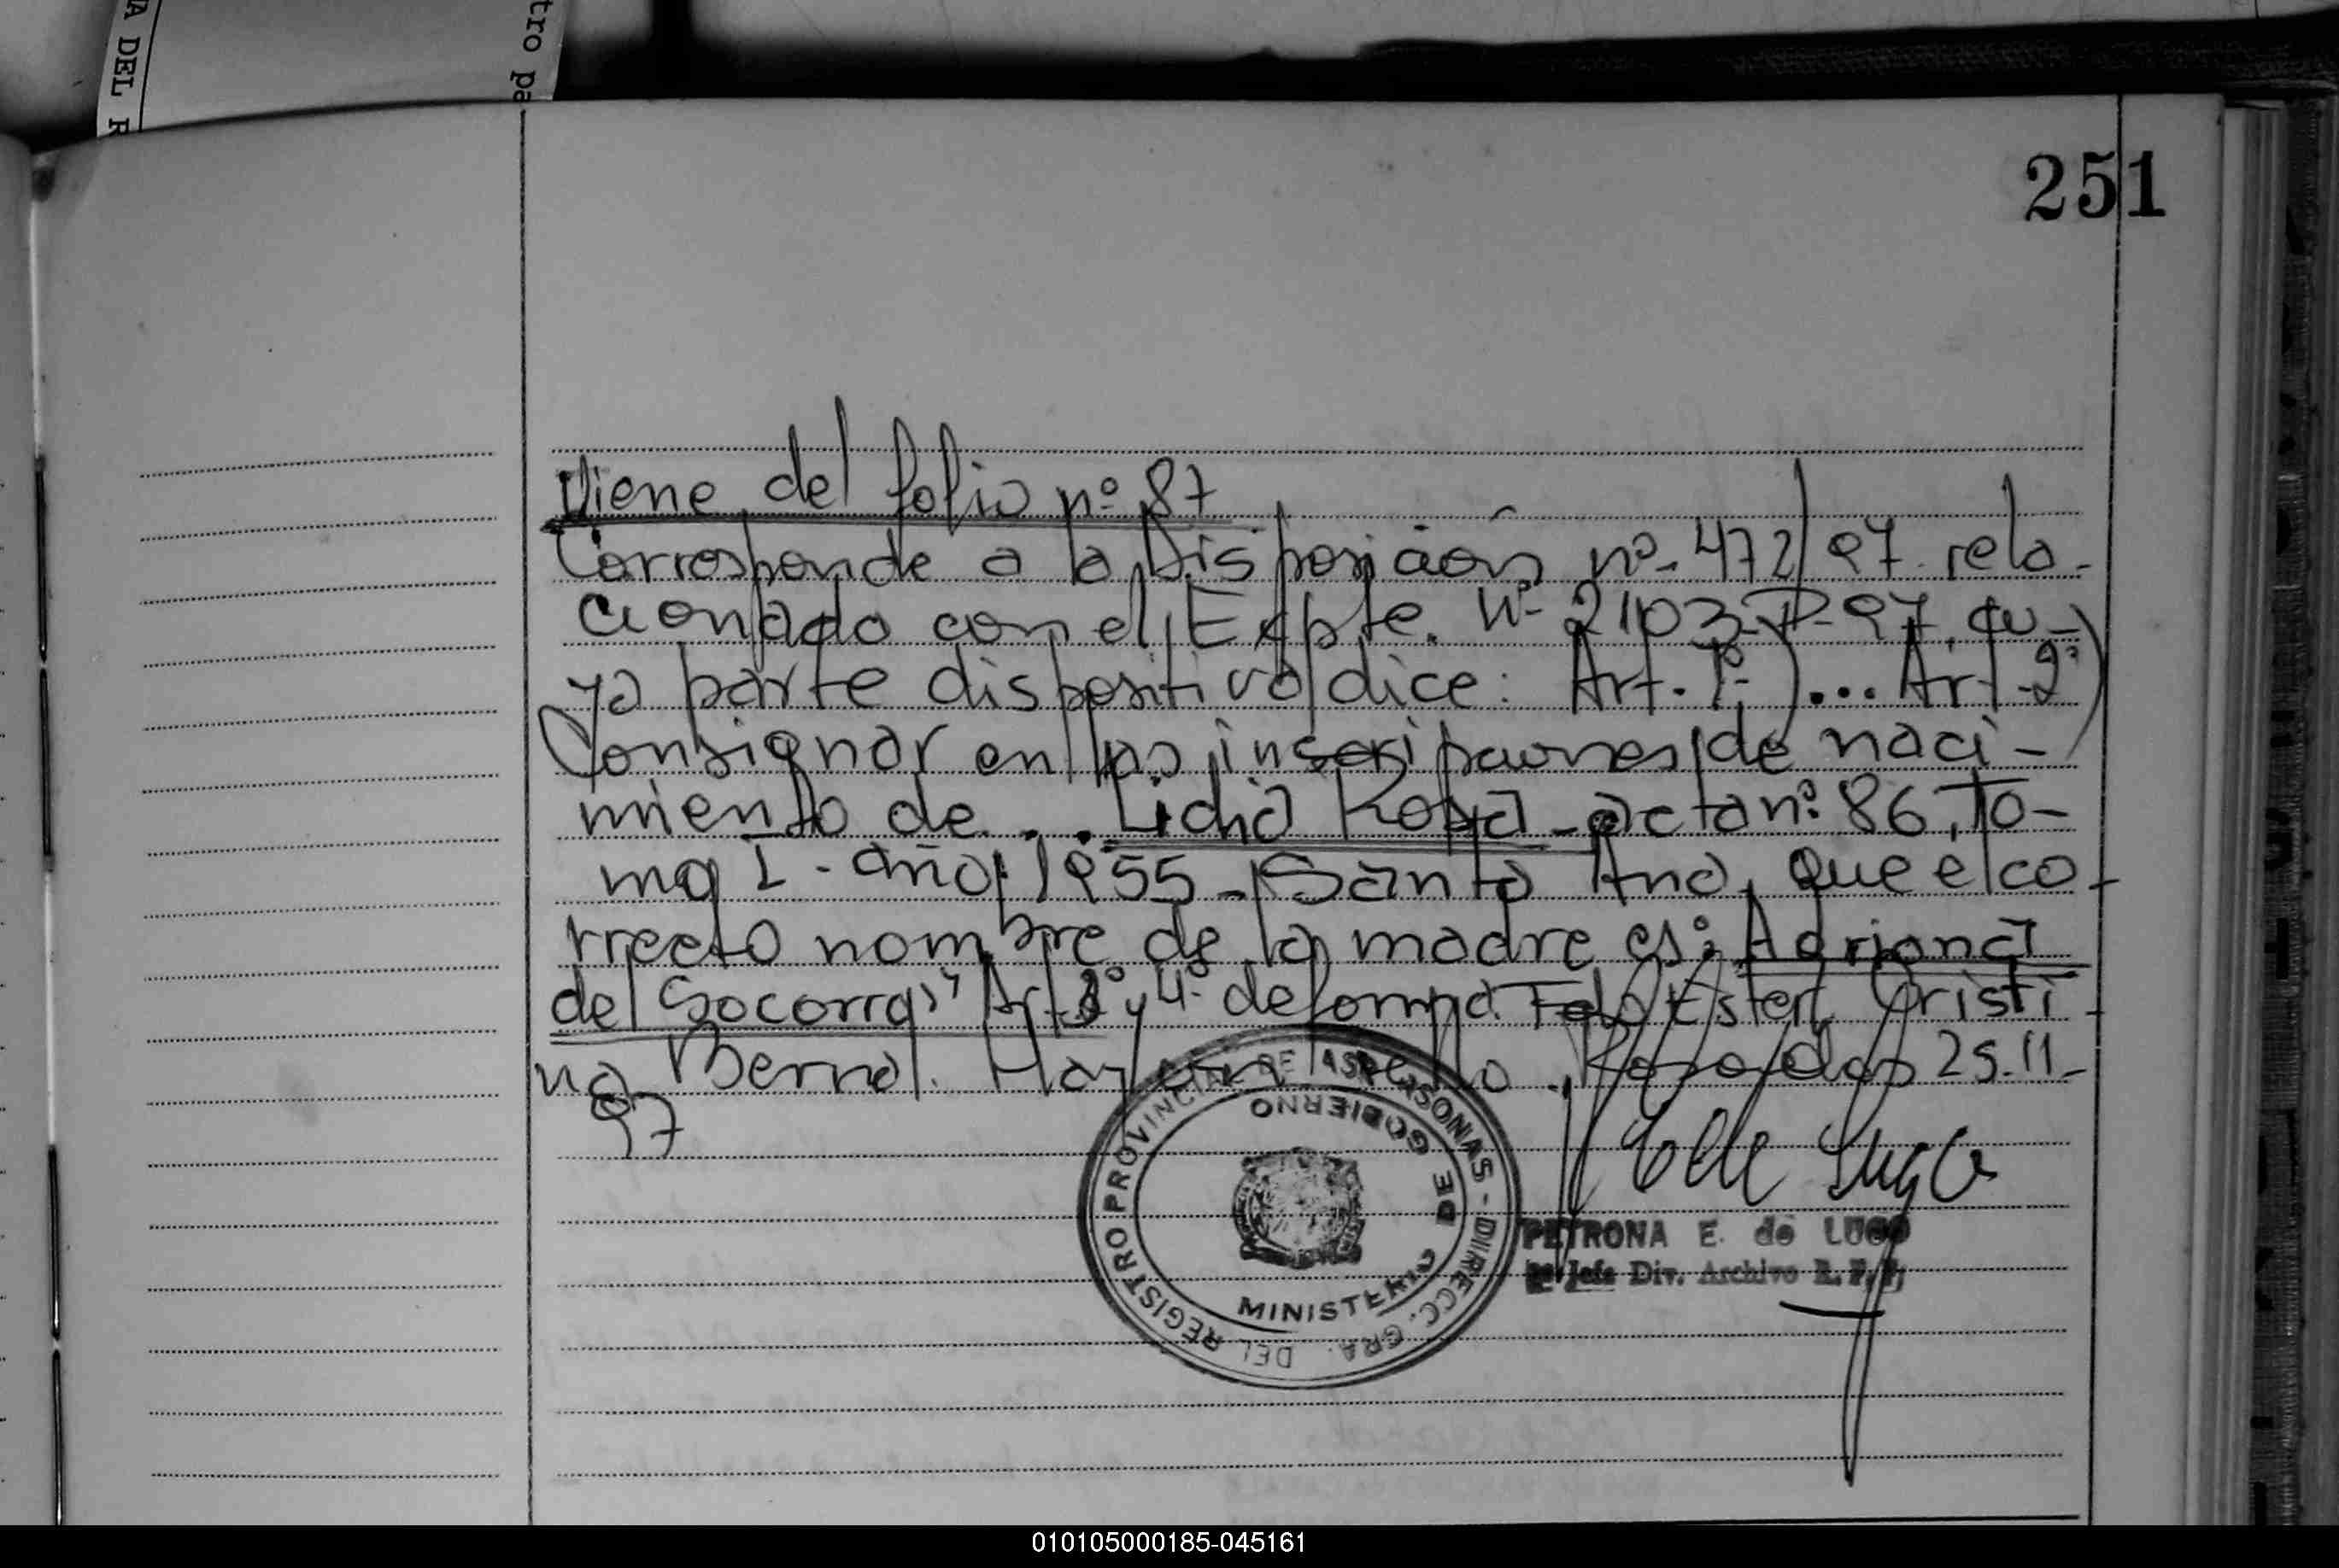 A DEL R
tro pa
251
Viene del folio nº 87
Corresponde a la Disposición nº 472/97 rela-
cionado con el Expte. Nº 2103-P-97, cu-
ya parte dispositiva dice: Art. 1º)... Art. 2º)
Consignar en las inscripciones de naci-
miento de... Lidia Rosa - acta nº: 86, To-
mo I - año: 1955 - Santa Ana, que el co-
rrecto nombre de la madre es: Adriana
del Socorro" Art. 3º y 4º de forma. Fdo Ester Cristi-
na Bernal. Hay un sello. Posadas 25-11-
97
REGISTRO PROVINCIAL DE LAS PERSONAS - DIRECC. GRAL. DEL
MINISTERIO DE GOBIERNO
PETRONA E. de LUGO
Jefe Div. Archivo R. P. P.
010105000185-045161